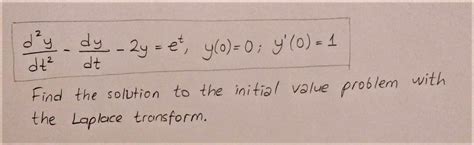 d²y/dt² - dy/dt - 2y = eᵗ, y(0)=0; y'(0)=1
Find the solution to the initial value problem with
the Laplace transform.